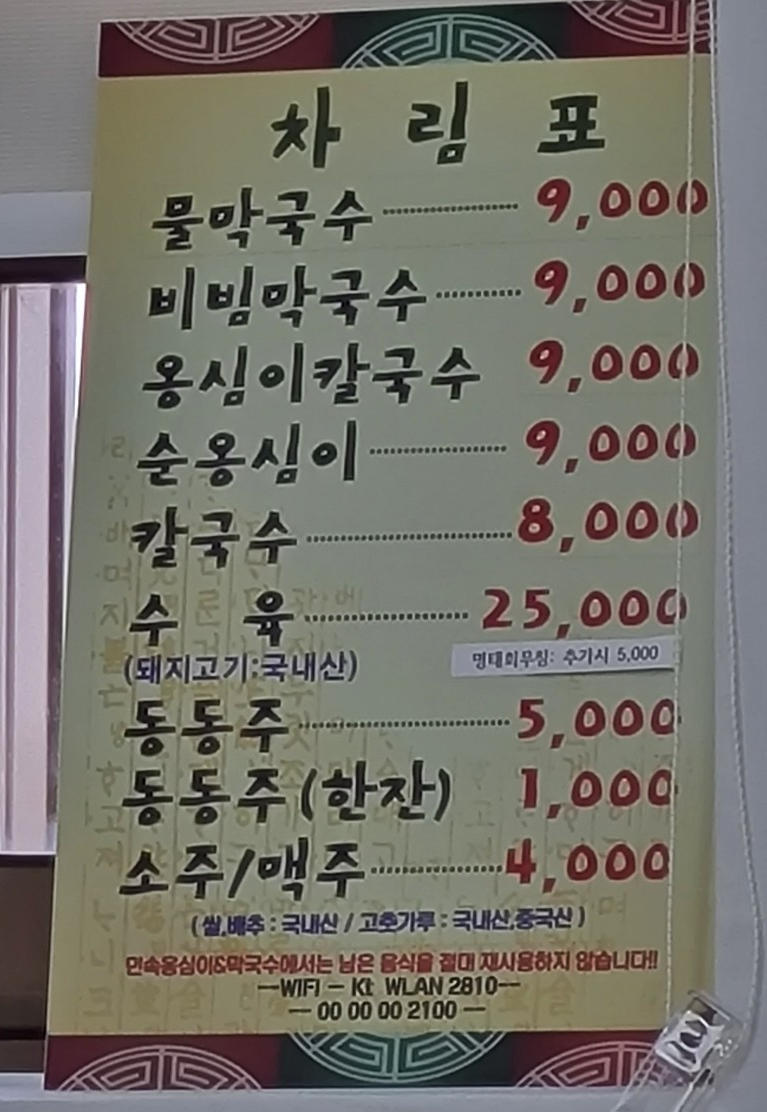 차림표
물막국수 9,000
비빔막국수 9,000
옹심이칼국수 9,000
순옹심이 9,000
칼국수 8,000
수육 25,000
(돼지고기:국내산) 명태회무침: 추가시 5,000
동동주 5,000
동동주(한잔) 1,000
소주/맥주 4,000
(쌀,배추 : 국내산 / 고춧가루 : 국내산,중국산)
민속옹심이&막국수에서는 남은 음식을 절대 재사용하지 않습니다!!
--WIFI - Kt WLAN 2810--
- 00 00 00 2100 -